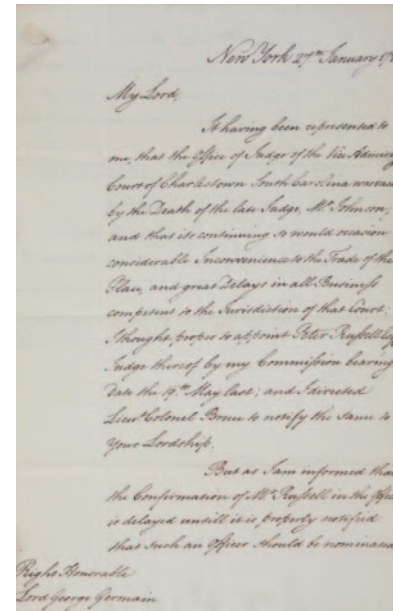 New York 27th January 17
My Lord,
It having been represented to
me, that the Office of Judge of the Vice Admir
Court of Charlestown South Carolina was vac
by the Death of the late Judge, Mr Johnson;
and that its continuing so would occasion
considerable Inconvenience to the Trade of the
Place, and great Delays in all Business
competent to the Jurisdiction of that Court:
I thought proper to appoint Peter Russell Esq
Judge thereof by my Commission bearing
Date the 19th May last; and I directed
Lieut Colonel Bruce to notify the same to
Your Lordship.
But as I am informed that
the Confirmation of Mr Russell in the Office
is delayed untill it is properly notified
that such an Officer should be nominated
Right Honorable
Lord George Germain